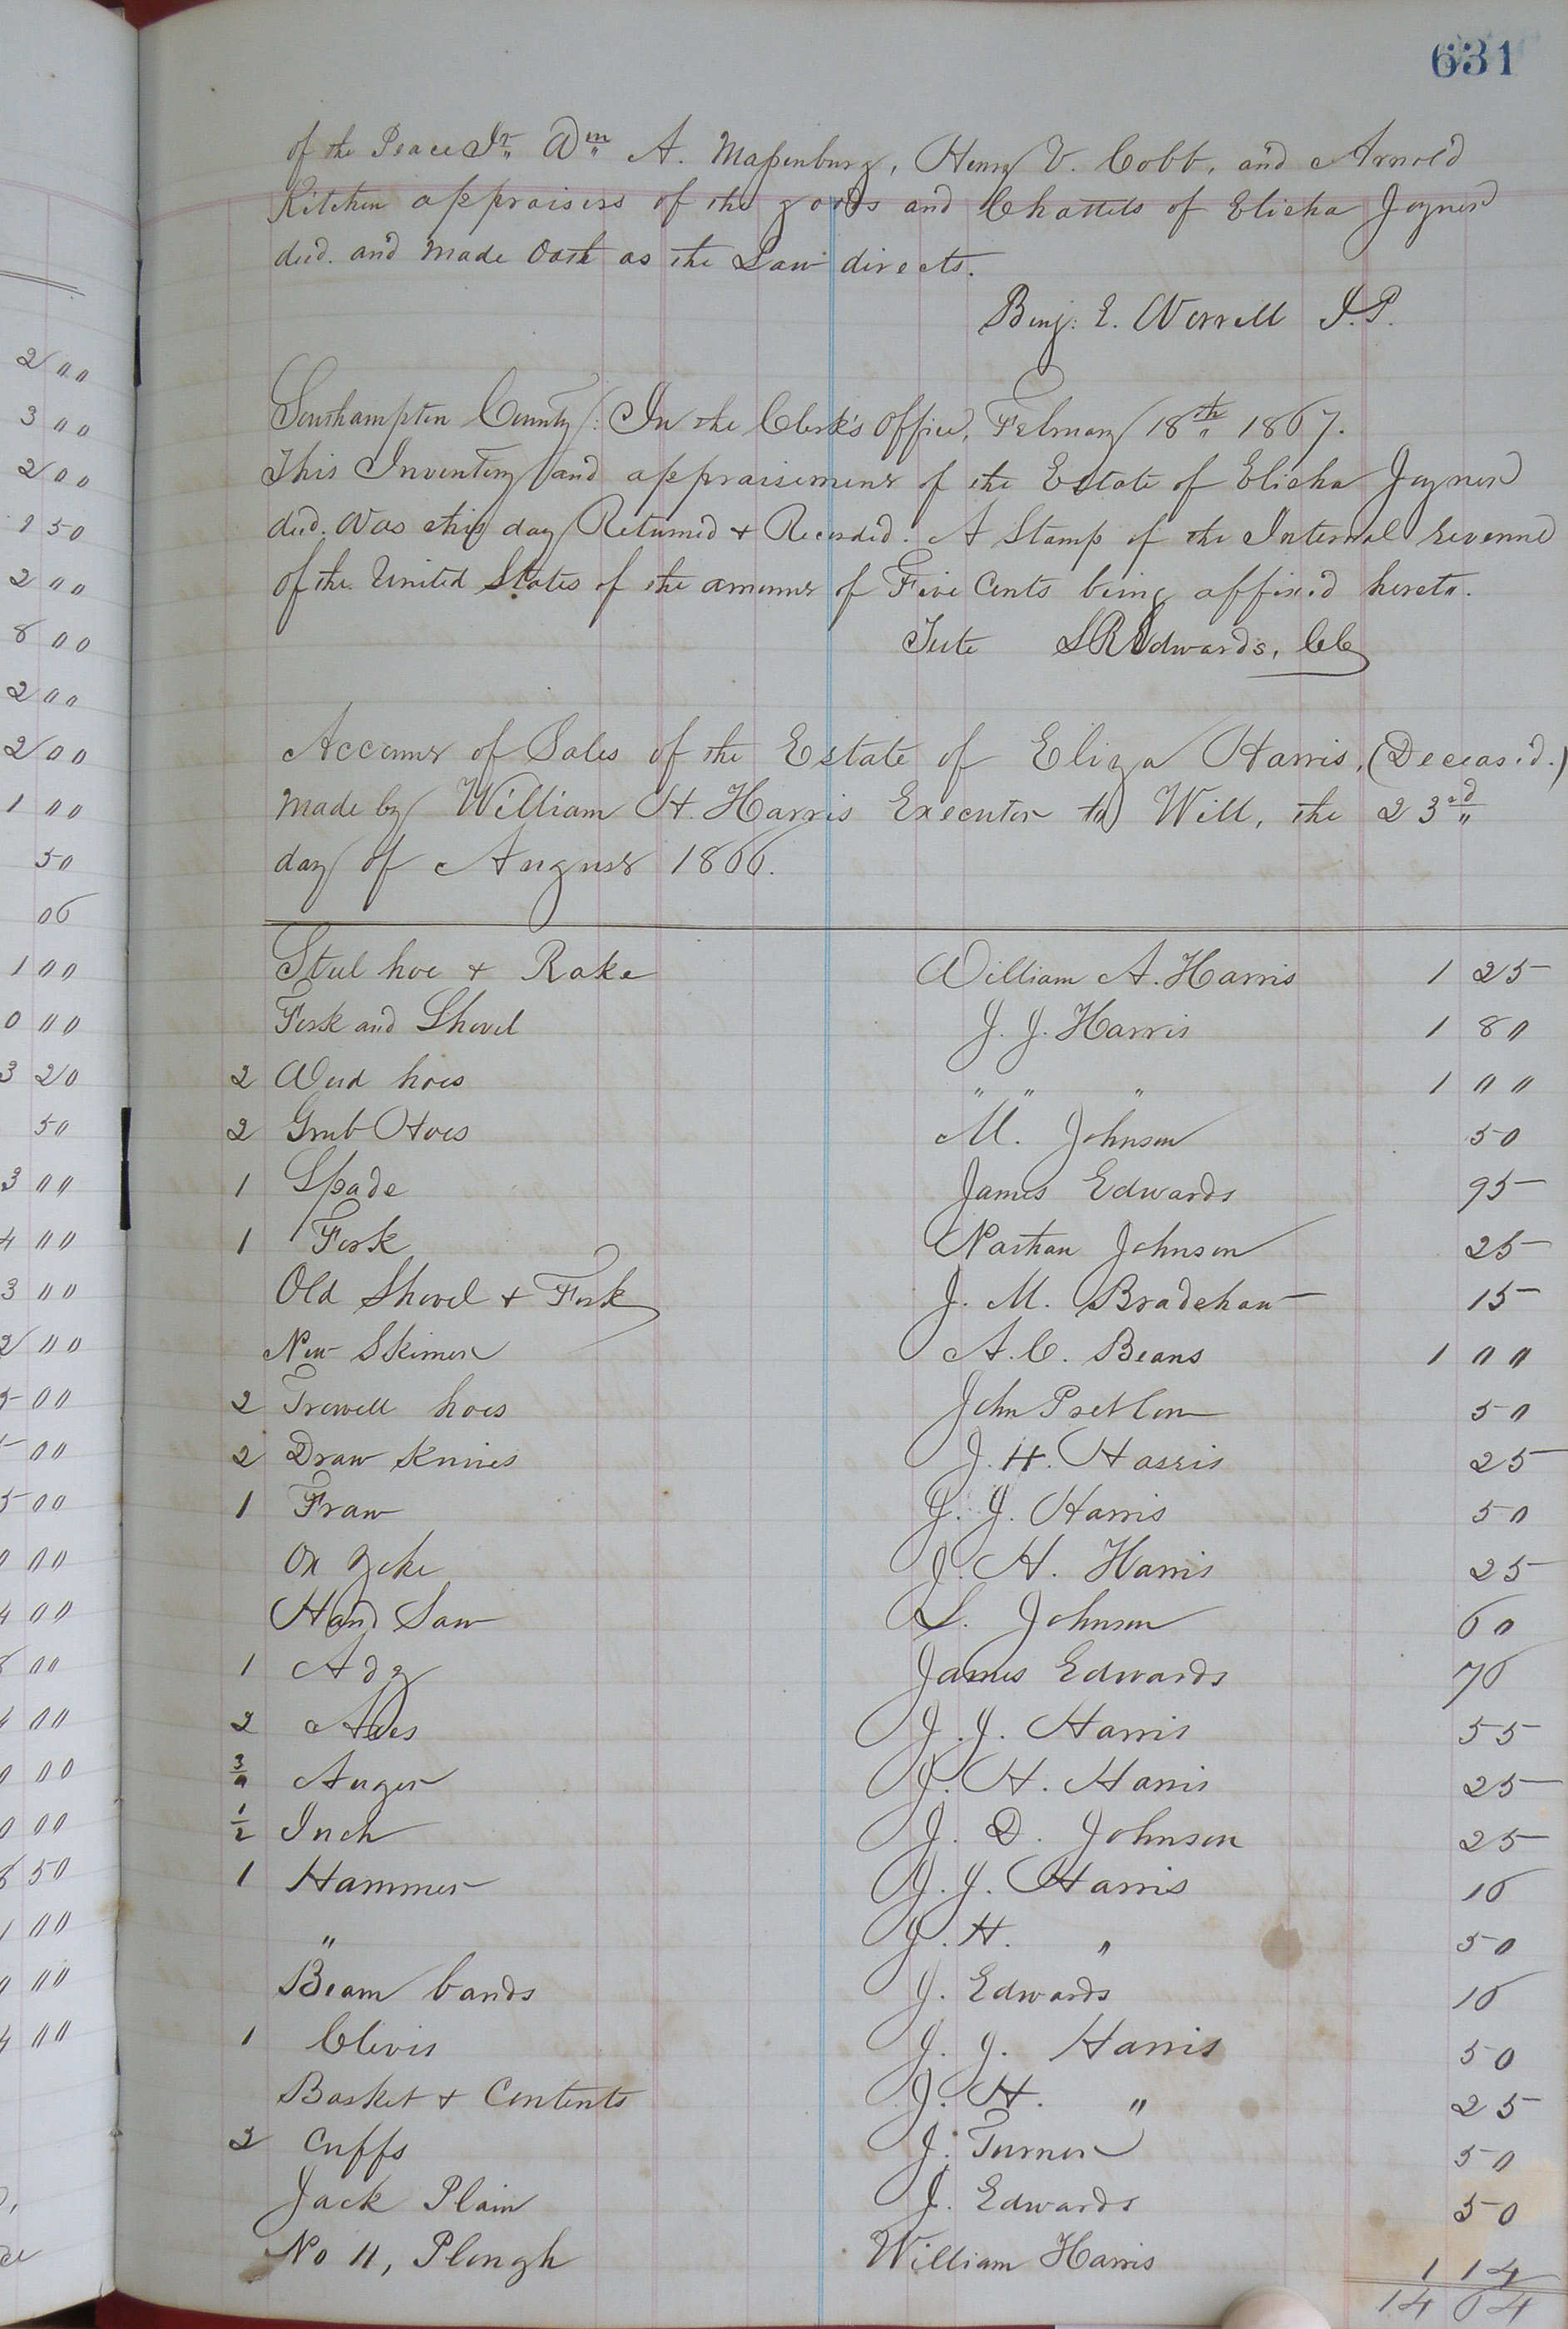 631
of the Peace Jr. Wm A. Massenburg, Henry V. Cobb, and Arnold
Kitchen appraisers of the goods and Chattels of Elisha Joyner
decd. and made Oath as the Law directs.
Benj: E. Worrell J.P.
Southampton County: In the Clerk's Office, February 18th 1867.
This Inventory and appraisement of the Estate of Elisha Joyner
decd. Was this day Returned & Recorded. A Stamp of the Internal Revenue
of the United States of the amount of Five Cents being affixed hereto.
Teste LREdwards, CC
Account of Sales of the Estate of Eliza Harris, (Deceas'd.)
made by William H. Harris Executor to Will, the 23rd
day of August 1866.
Steel hoe & Rake William A. Harris 1 25
Fork and Shovel J. J. Harris 1 80
2 Weed hoes " " " 1 00
2 Grub Hoes M. Johnson 50
1 Spade James Edwards 95
1 Fork Nathan Johnson 25
Old Shovel & Fork J. M. Bradshaw 15
New Skimer A. C. Beans 1 00
2 Trowell hoes John Pretlow 50
2 Draw Knives J. H. Harris 25
1 Fraw J. J. Harris 50
Ox Yoke J. H. Harris 25
Hand Saw S. Johnson 60
1 Adz James Edwards 76
2 Axes J. J. Harris 55
3/4 Auger J. H. Harris 25
1/2 Inch J. D. Johnson 25
1 Hammer J. J. Harris 16
" J. H. " 50
Beam bands J. Edwards 16
1 Clevis J. J. Harris 50
Basket & Contents J. H. " 25
2 Cuffs J. Turner 50
Jack Plain J. Edwards 50
No 11, Plough William Harris 1 14
14 64
2 00
3 00
2 00
1 50
2 00
8 00
2 00
2 00
1 00
50
06
1 00
0 00
3 20
50
3 00
4 00
3 00
2 00
5 00
00
5 00
00
4 00
00
00
00
00
50
00
00
4 00